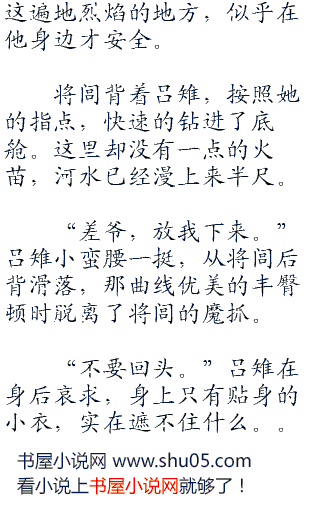 这遍地烈焰的地方，似乎在
他身边才安全。
将闾背着吕雉，按照她
的指点，快速的钻进了底
舱。这里却没有一点的火
苗，河水已经漫上来半尺。
“差爷，放我下来。”
吕雉小蛮腰一挺，从将闾后
背滑落，那曲线优美的丰臀
顿时脱离了将闾的魔抓。
“不要回头。”吕雉在
身后哀求，身上只有贴身的
小衣，实在遮不住什么。。
书屋小说网 www.shu05.com
看小说上书屋小说网就够了！